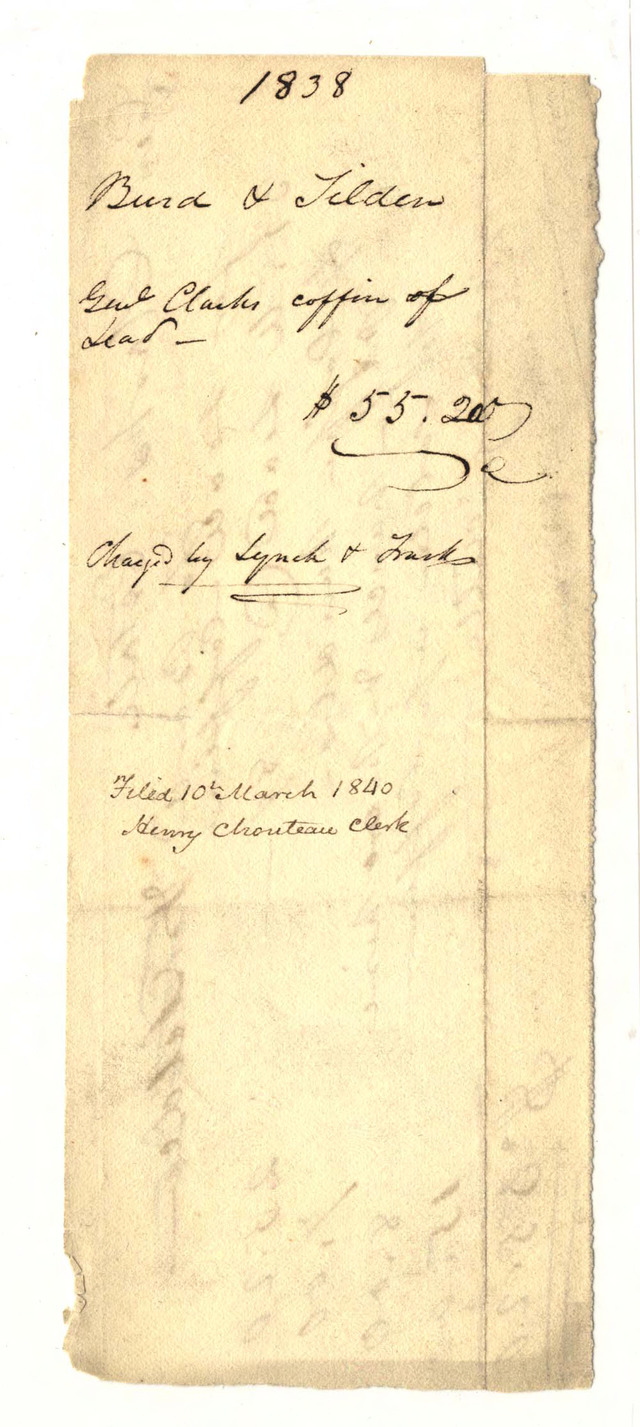 1838
Burd & Tilden
Genl Clarks coffin of
Lead —
$ 55.20
Charg'd by Lynch & Trask
Filed 10th March 1840
Henry Chouteau Clerk